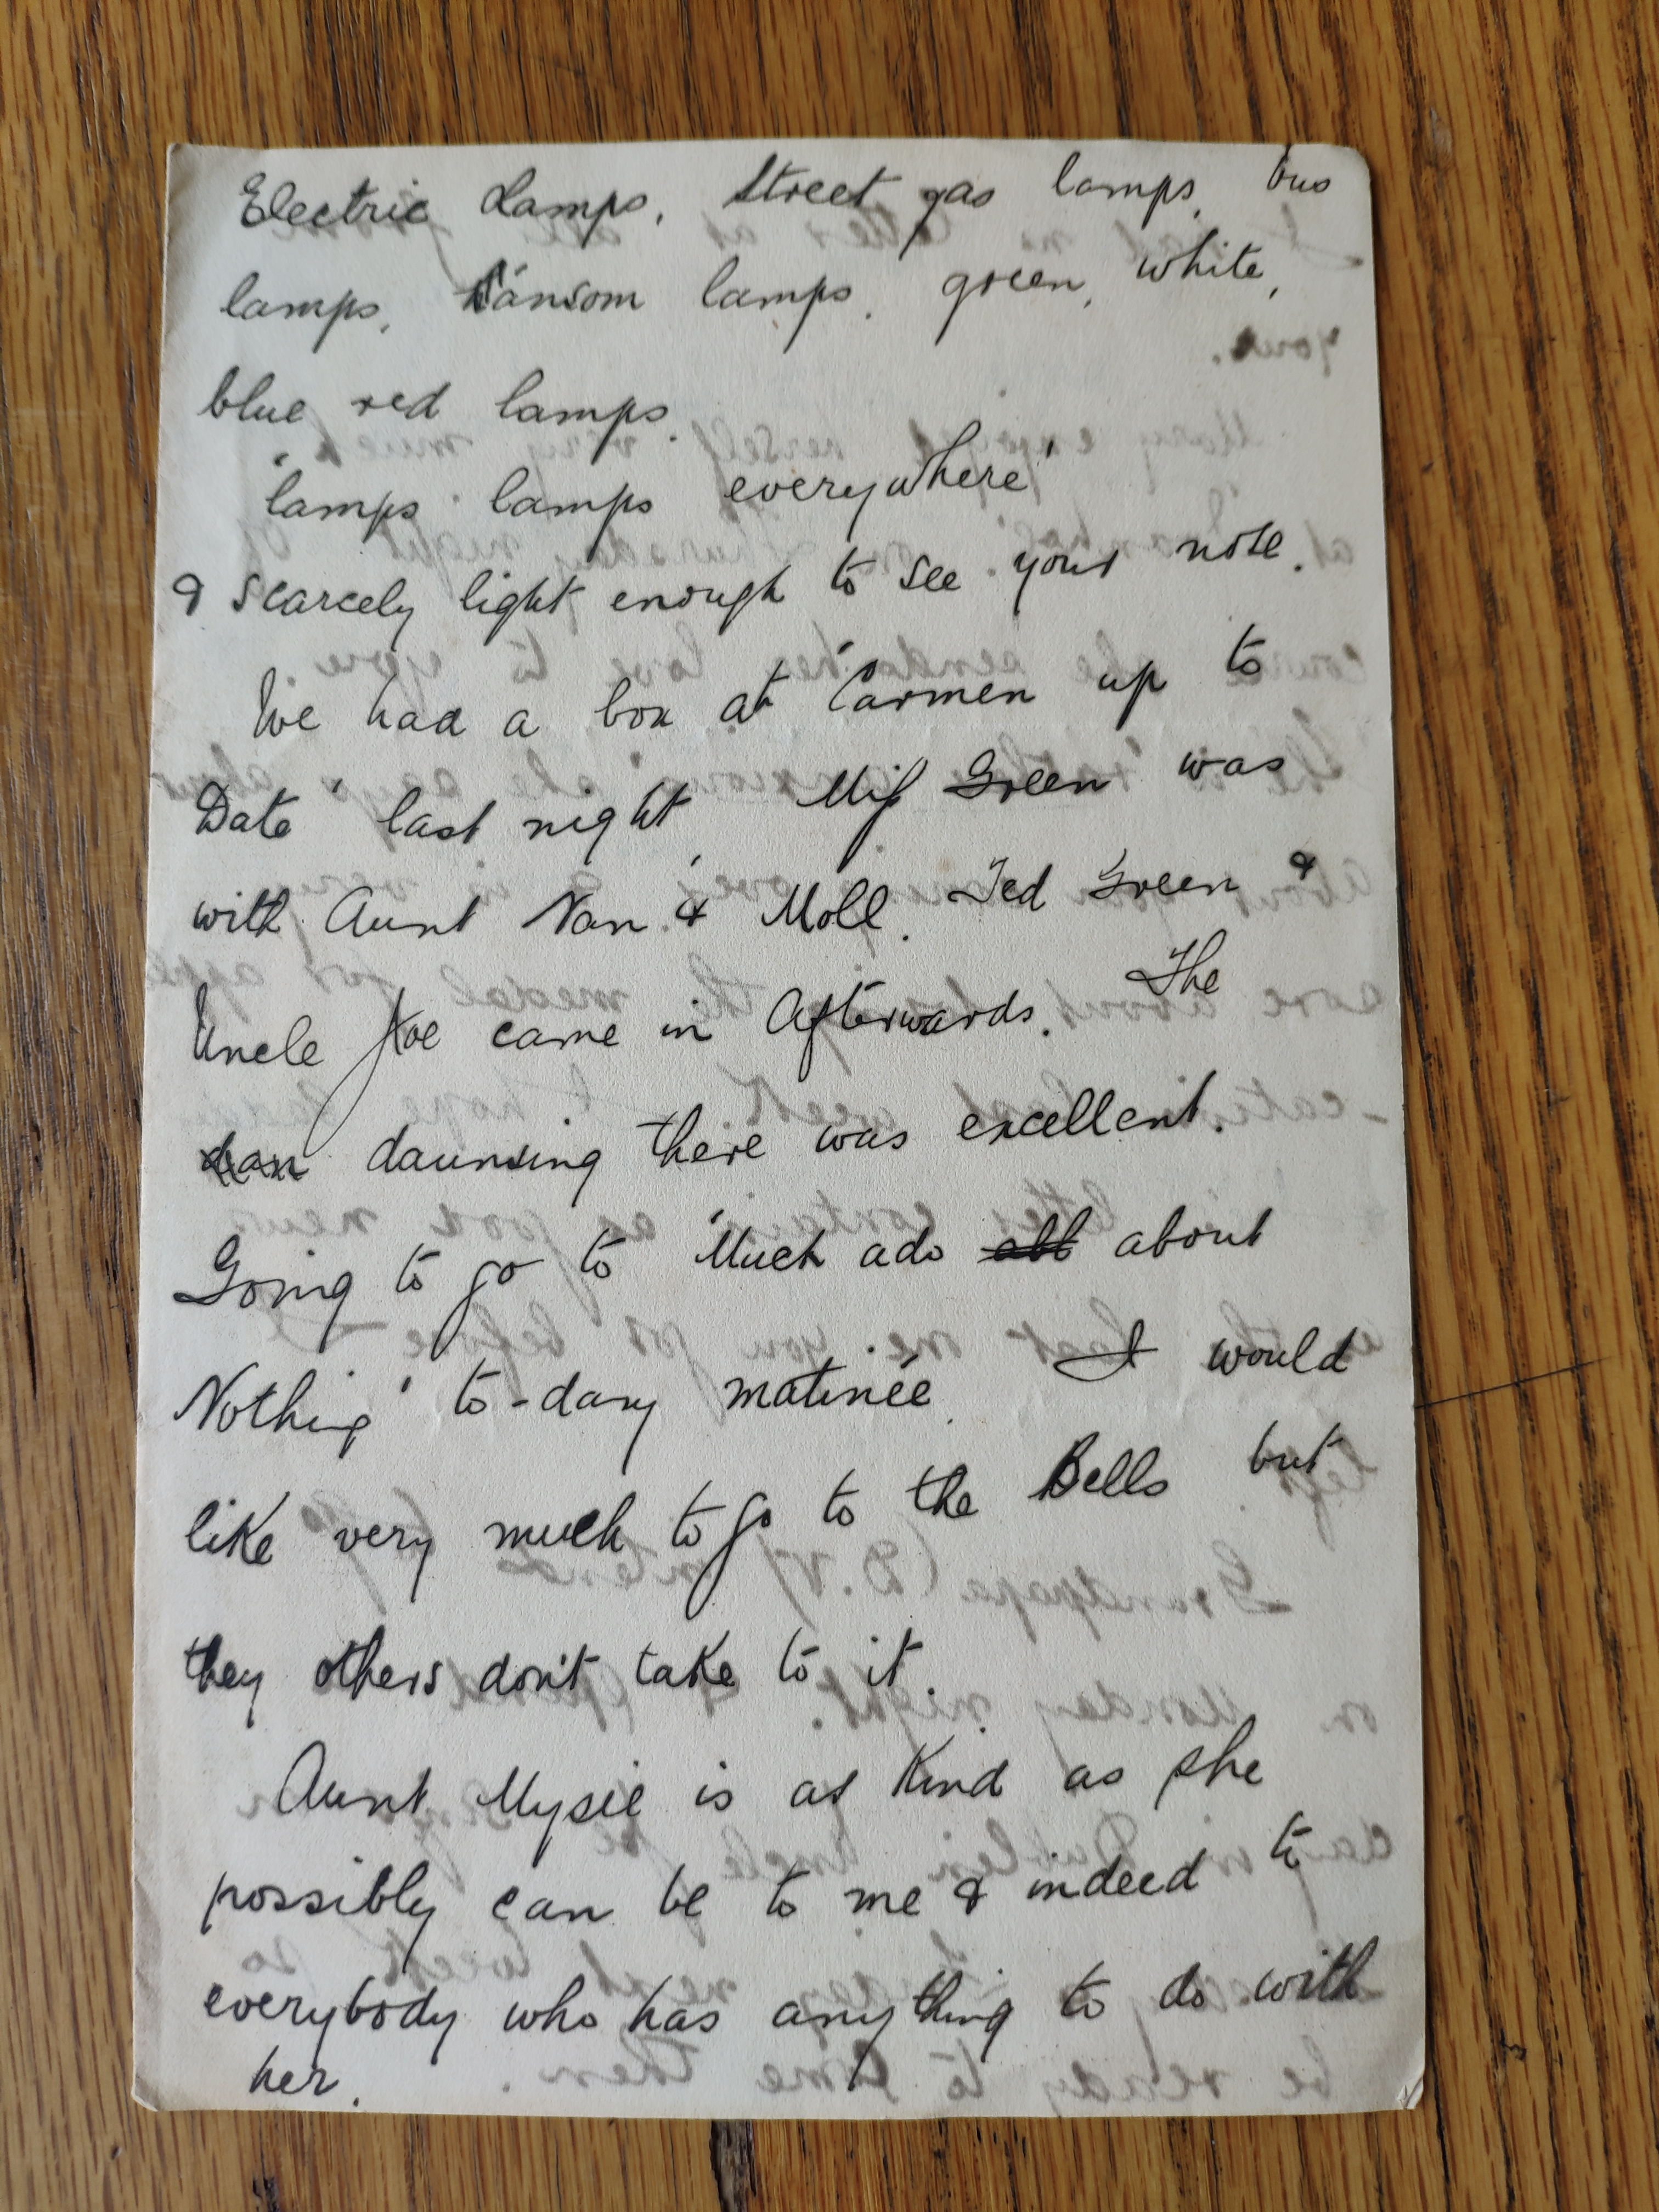 Electric Lamps, Street gas lamps, bus
lamps, hansom lamps, green, white,
blue red lamps.
"lamps lamps everywhere"
& scarcely light enough to see your nose.
We had a box at 'Carmen up to
Date' last night, Miss Green was
with Aunt Nan & Moll. Ted Green &
Uncle Joe came in afterwards. The
dan daunsing there was excellent.
Going to go to 'Much ado all about
Nothing' to-day matinée. I would
like very much to go to the Bells but
they others don't take to it.
Aunt Mysie is as kind as she
possibly can be to me & indeed to
everybody who has anything to do with
her.